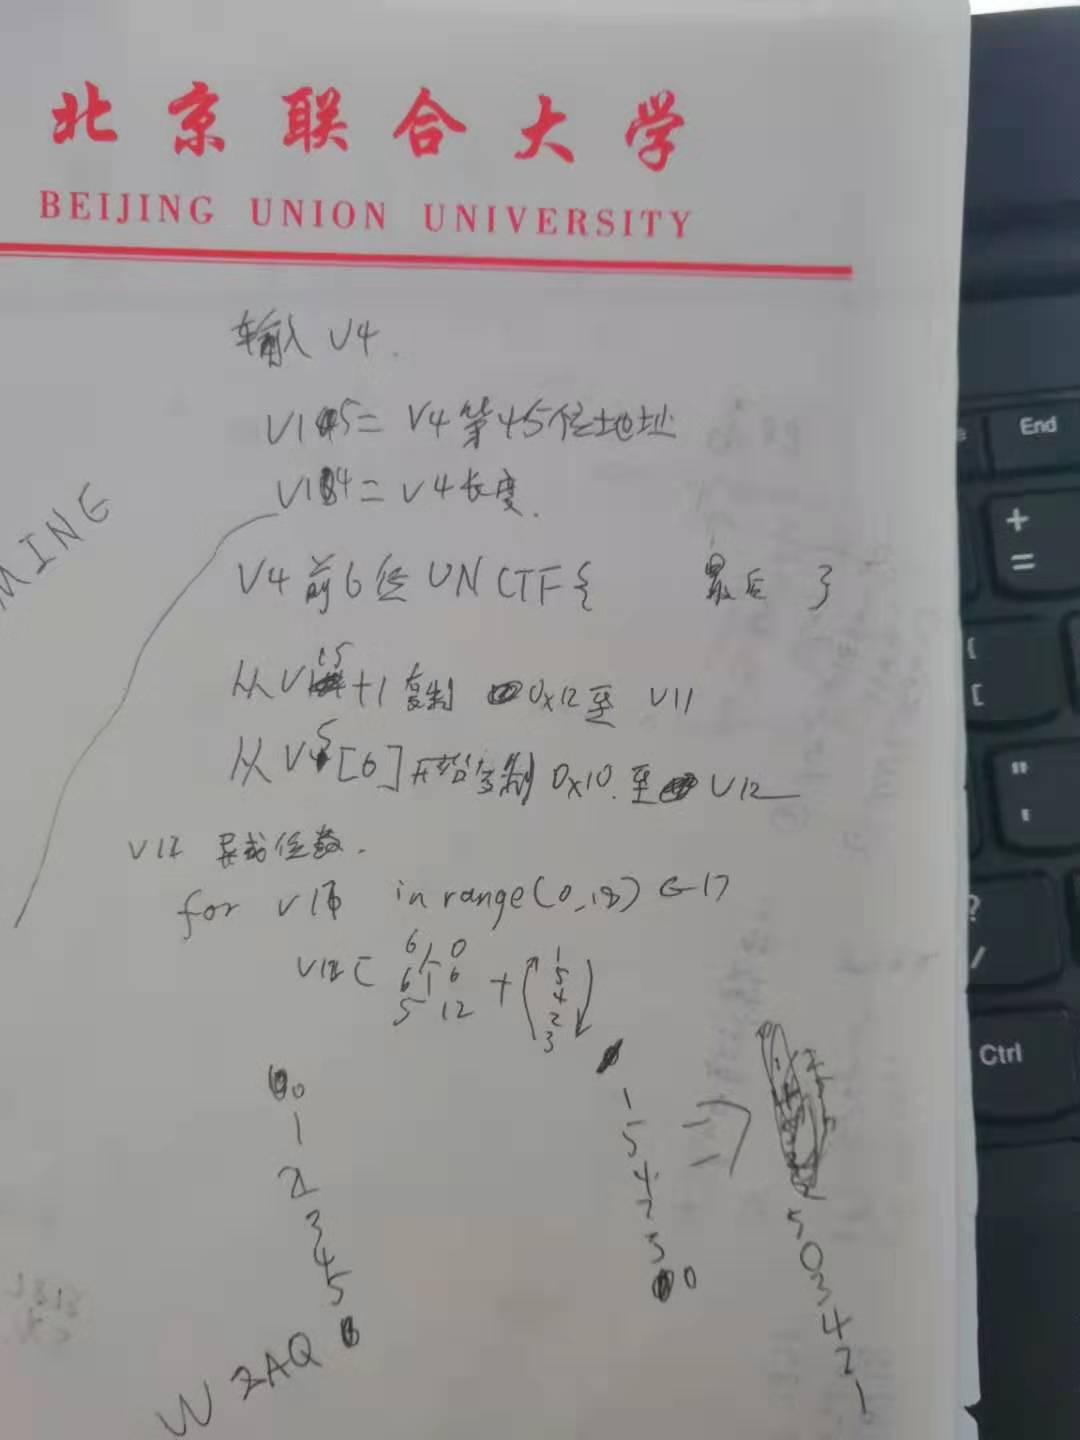 北京联合大学
BEIJING UNION UNIVERSITY
输入 V4.
V15 = V4第45位地址
V14 = V4长度.
MING
V4前6位 UNCTF{ 最后 }
从V15+1复制 0x12至 V11
从V5[6]开始复制 0x10.至 V12
位数.
for V1 in range(0,18) 17
6 1 0
6 1 6
5 12
+
1
5
4
2
3
0
1
2
3
4
5
1
5
4
2
3
0
=>
5
0
3
4
2
1
WZAQ
End
+
=
{
[
"
'
?
/
Ctrl